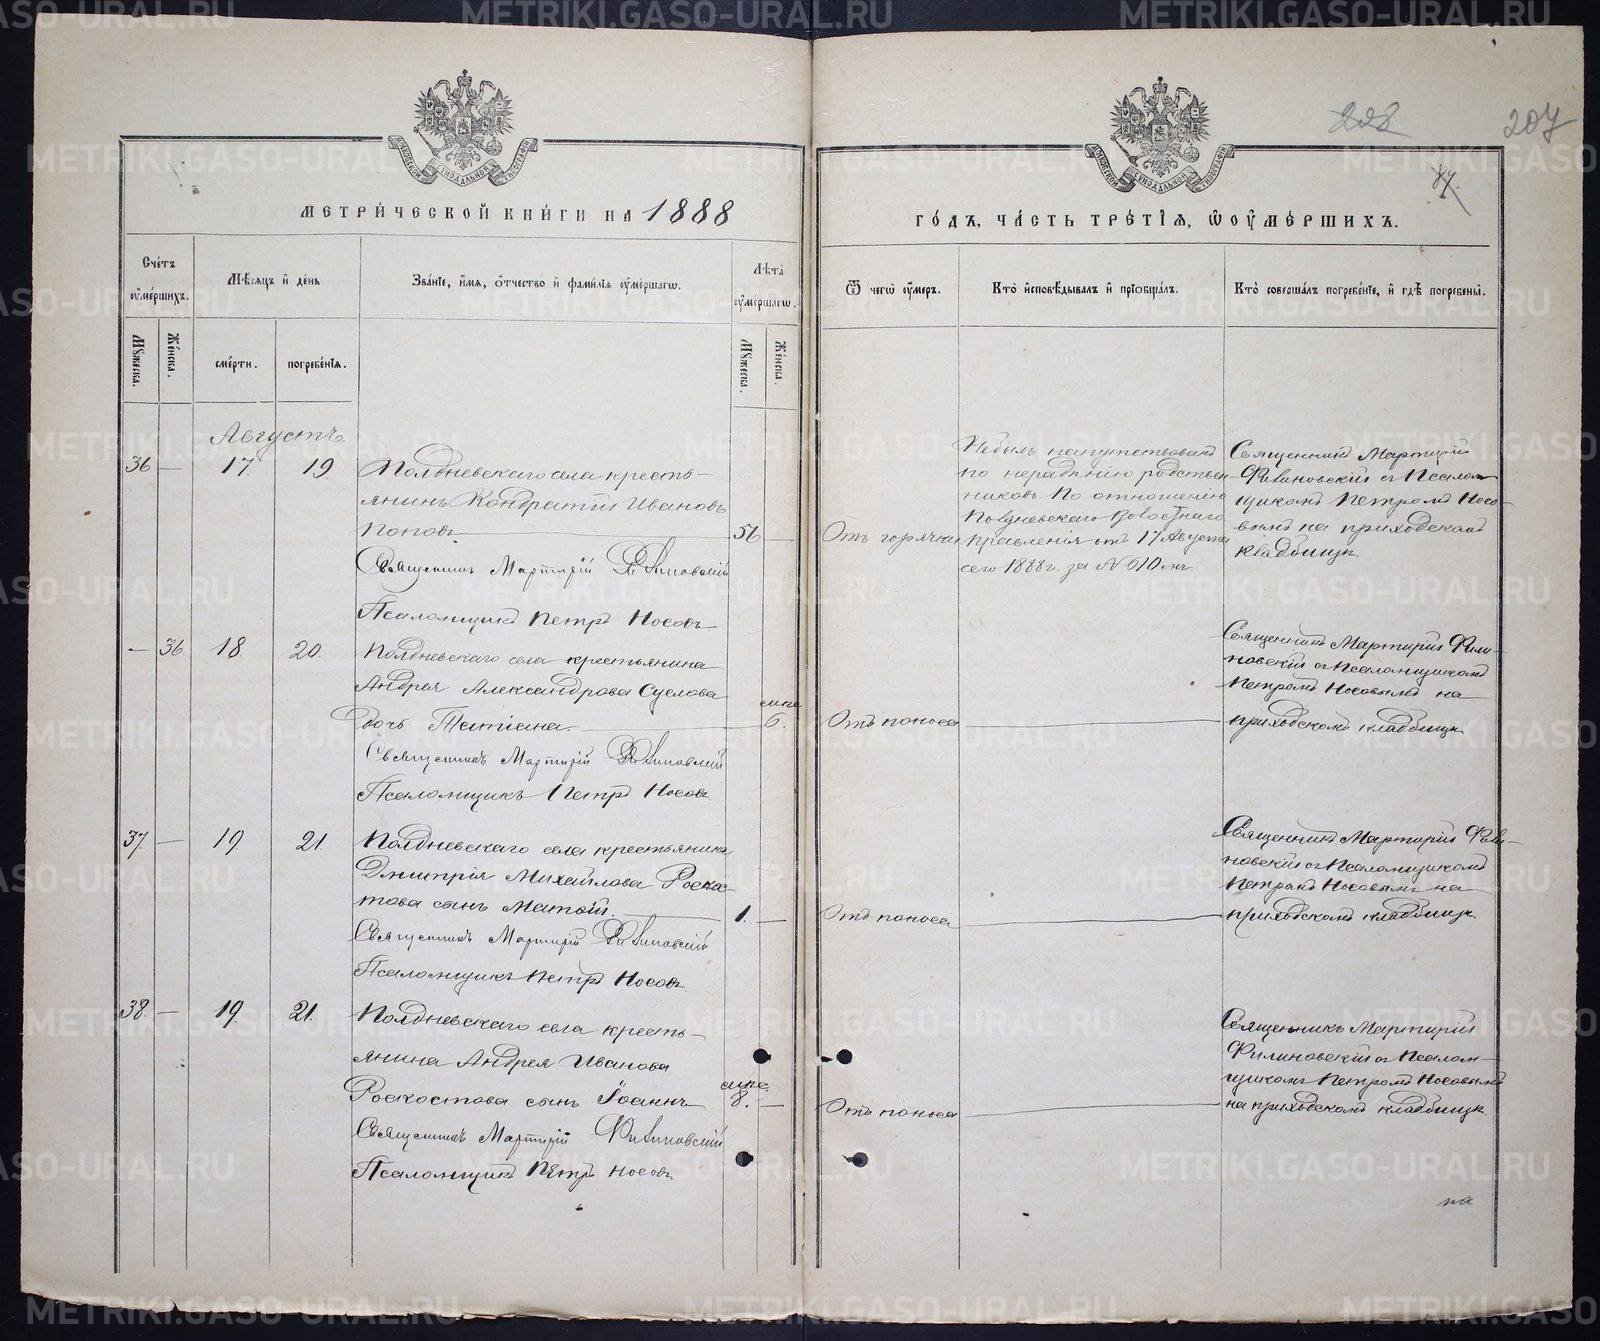 228
207
87.
МЕТРИ́ЧЕСКОЙ КНИ́ГИ НА 1888
ГО́ДЪ, ЧА́СТЬ ТРЕ́ТІЯ, Ѡ ОУМЕ́РШИХЪ.
Сче́тъ оуме́ршихъ.
Мѣсяцъ и де́нь
Зва́ніе, и́мя, о́тчество и фами́лія оуме́ршагѡ.
Лѣта̀ оуме́ршагѡ.
Ѿ чегѡ̀ оу́меръ.
Кто̀ исповѣ́дывалъ и пріобща́лъ.
Кто̀ соверша́лъ погребе́ніе, и гдѣ̀ погребены̀.
Му́жеска.
Же́нска.
сме́рти.
погребе́нія.
Му́жеска.
Же́нска.
Августъ.
36 — 17. 19.
Полдневскаго села кресть-
янинъ Кондратій Ивановъ
Поповъ. 56 —
Священникъ Мартирій Филиновскій
Псаломщикъ Петръ Носовъ
Отъ горячки
Небылъ напутствован
по нерадѣнію родствен
никовъ. По отношенію
Полдневскаго Волостнаго
Правленія отъ 17 Августа
сего 1888 г. за № 610 мъ.
Священникъ Мартирій
Филиновскій съ Псалом
щикомъ Петромъ Носо-
вымъ на приходскомъ
кладбищѣ.
— 36. 18. 20.
Полдневскаго села крестьянина
Андрея Александрова Суслова
дочь Татіана. 6.
Священникъ Мартирій Филиновскій
Псаломщикъ Петръ Носовъ
Отъ поноса
Священникъ Мартирій Фили-
новскій съ Псаломщикомъ
Петромъ Носовымъ на
приходскомъ кладбищѣ.
37. — 19 21.
Полдневскаго села крестьянина
Дмитрія Михайлова Роскос-
това сынъ 1. —
Священникъ Мартирій Филиновскій
Псаломщикъ Петръ Носовъ
Отъ поноса
Священникъ Мартирій Фили-
новскій съ Псаломщикомъ
Петромъ Носовымъ на
приходскомъ кладбищѣ.
38. — 19. 21.
Полдневскаго села кресть-
янина Андрея Иванова
Роскостова сынъ Іоаннъ 8. —
Священникъ Мартирій Филиновскій
Псаломщикъ Петръ Носовъ
Отъ поноса
Священникъ Мартирій
Филиновскій съ Псалом-
щикомъ Петромъ Носовымъ
на приходскомъ кладбищѣ
на
METRIKI.GASO-URAL.RU